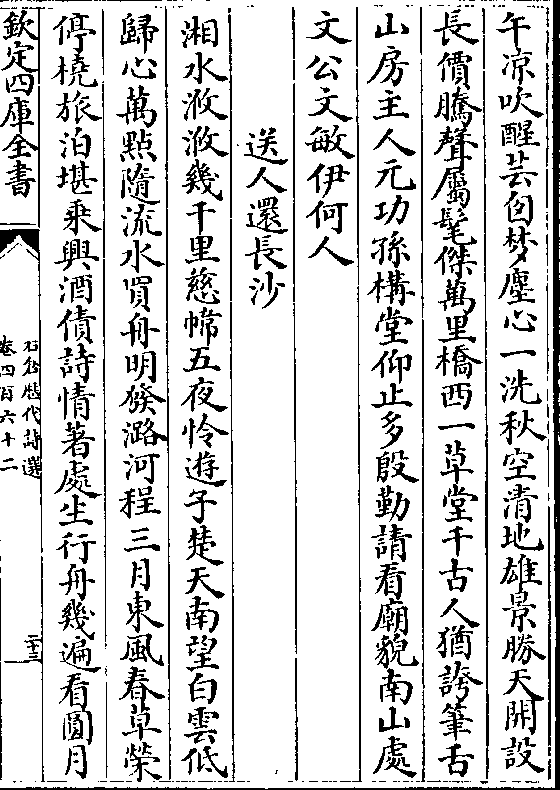 午凉吹醒芸囱梦塵心一洗秋空清地雄景勝天開設
長價騰聲屬髦傑萬里橋西一草堂千古人猶誇筆舌
山房主人元功孫構堂仰止多殷勤請看廟貌南山處
文公文敏伊何人
送人還長沙
湘水㳊㳊幾千里慈幃五夜怜遊子楚天南望白雲低
歸心萬點隨流水買舟明發潞河程三月東風春草榮
停橈旅泊堪乘興酒債詩情著處生行舟幾遍看圓月
欽定四庫全書
石倉歷代詩選
卷四百六十二
二十三